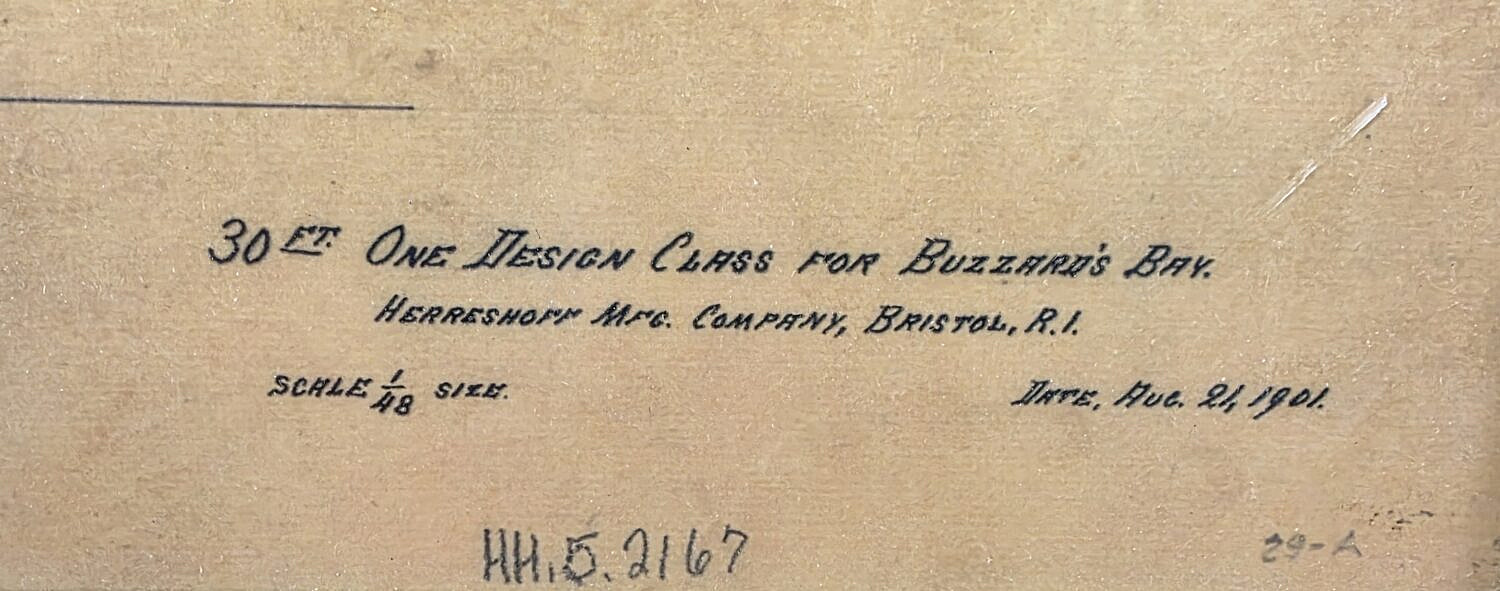 30 FT. ONE DESIGN CLASS FOR BUZZARD'S BAY.
HERRESHOFF MFG. COMPANY, BRISTOL, R.I.
SCALE 1/48 SIZE.
DATE, AUG. 21, 1901.
HH.5.2167
29-A